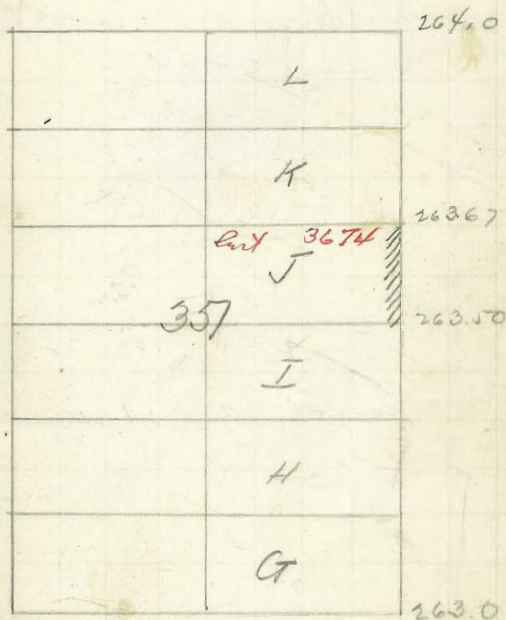 264.0
L
K
263.67
3674
J
357
263.50
I
H
G
263.0